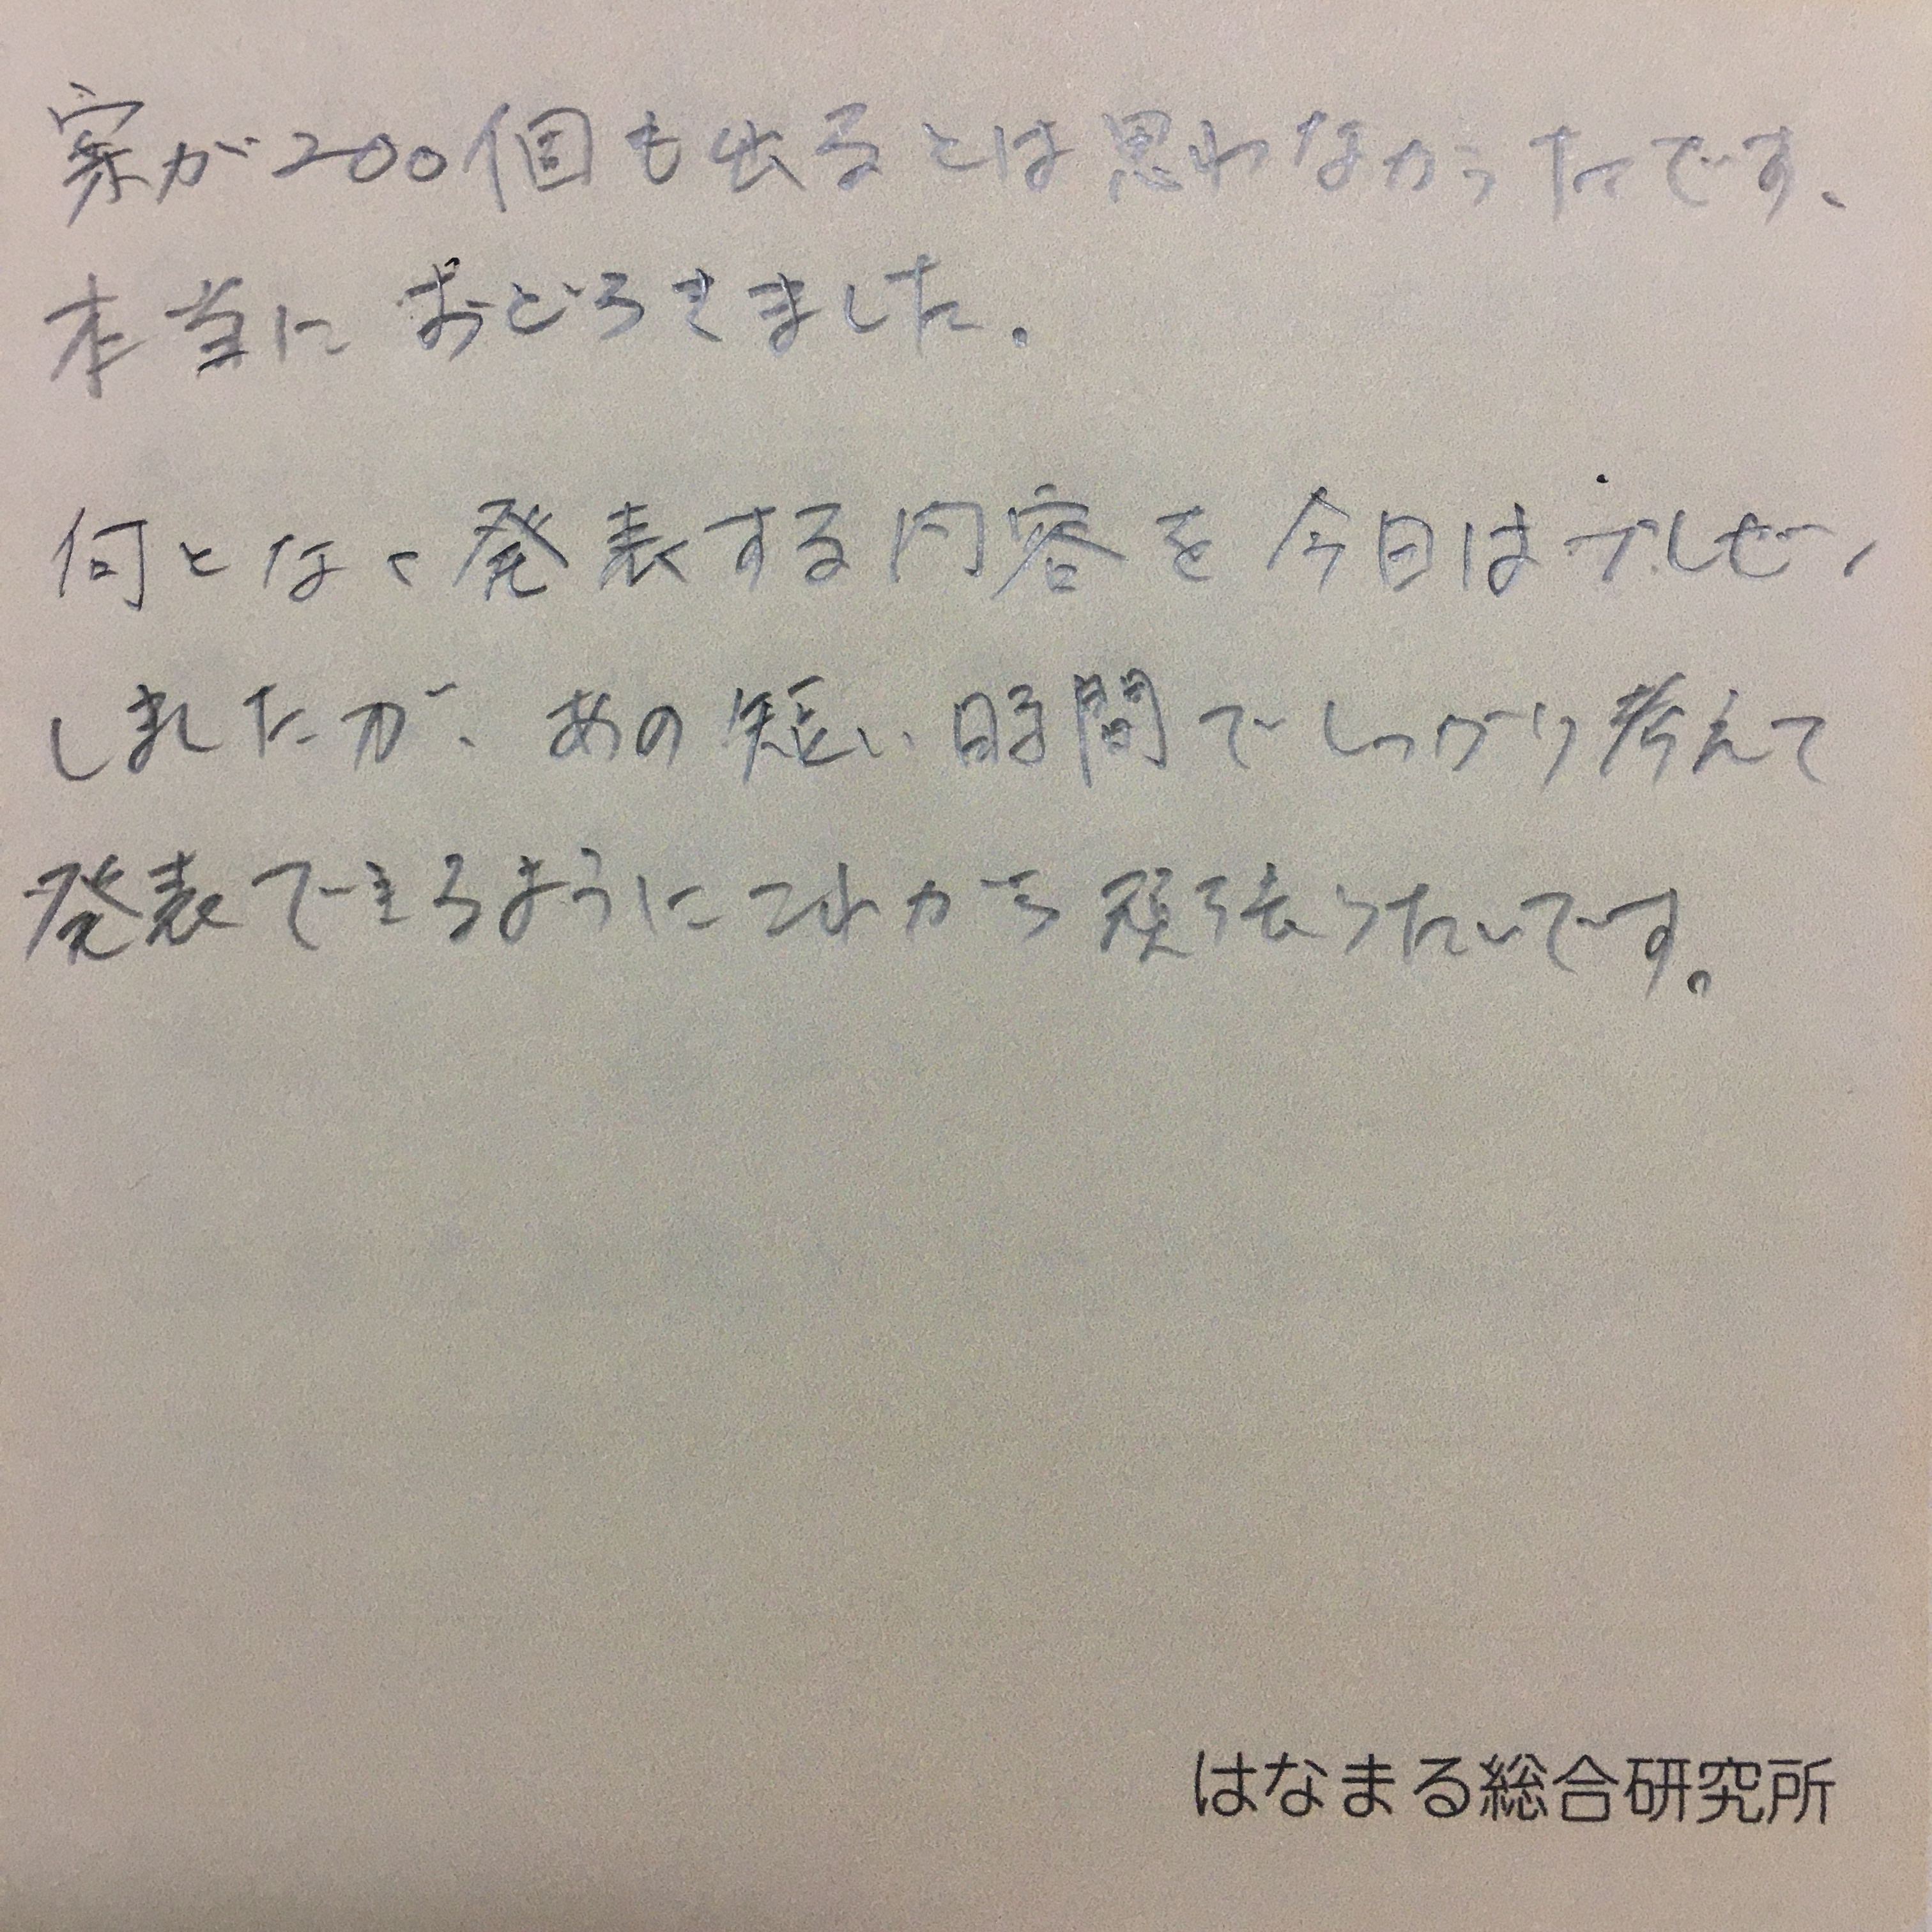 案が200個も出るとは思わなかったです、
本当におどろきました.
何となく発表する内容を今日はプレゼン
しましたが、あの短い時間でしっかり考えて
発表できるようにこれから頑張りたいです。
はなまる総合研究所